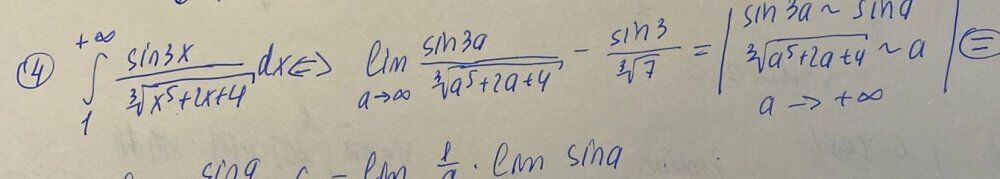 ④ ∫₁^{+∞} sin3x / ∛(x⁵+2x+4) dx ⇔ lim_{a→∞} sin3a / ∛(a⁵+2a+4) − sin3 / ∛7 = | sin3a ~ sina ∛(a⁵+2a+4) ~ a a → +∞ | ⊜
sina = lim 1/a · lim sina